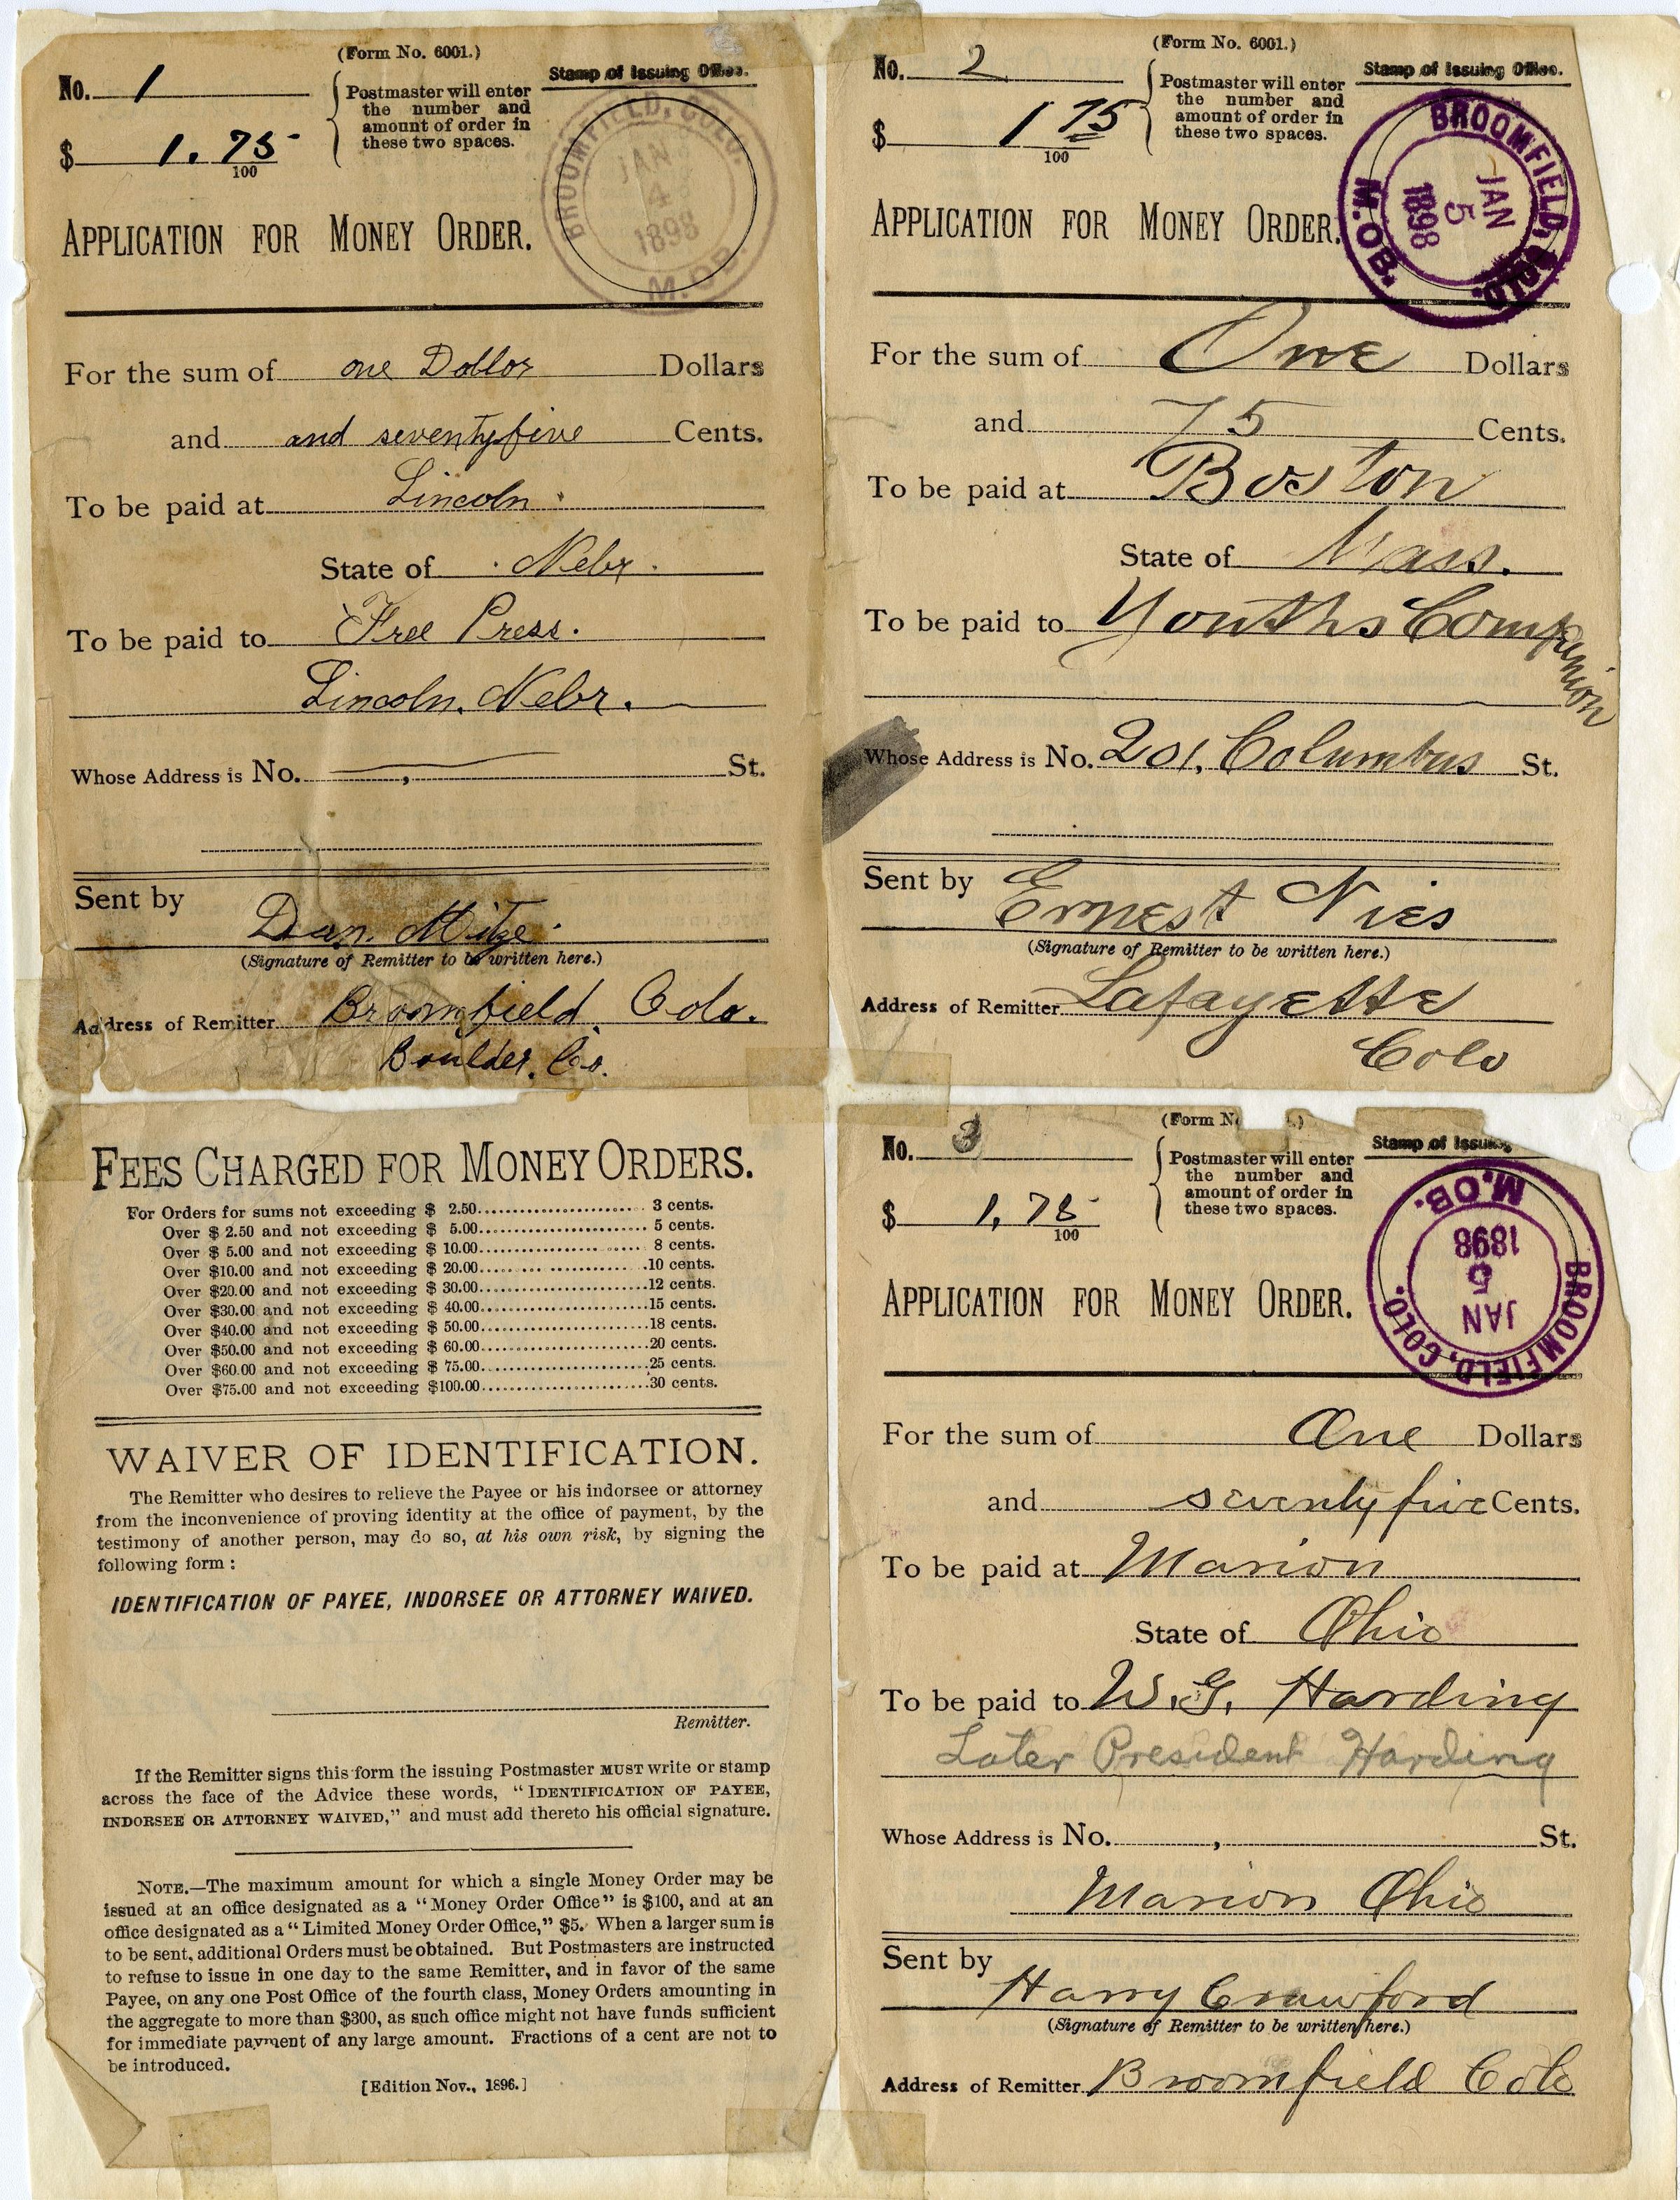 (Form No. 6001.)
No. 1
Stamp of Issuing Office.
Postmaster will enter
the number and
amount of order in
these two spaces.
$ 1.75
100
BROOMFIELD, COLO.
JAN
4
1898
M.O.B.
APPLICATION FOR MONEY ORDER.
For the sum of one Dollor Dollars
and and seventyfive Cents.
To be paid at Lincoln
State of Nebr.
To be paid to Free Press.
Lincoln, Nebr.
Whose Address is No. , St.
Sent by
Dan.
(Signature of Remitter to be written here.)
Address of Remitter Broomfield, Colo.
Boulder, Co.
(Form No. 6001.)
No. 2
Stamp of Issuing Office.
Postmaster will enter
the number and
amount of order in
these two spaces.
$ 1 75
100
BROOMFIELD, COLO.
JAN
5
1898
M.OB.
APPLICATION FOR MONEY ORDER.
For the sum of One Dollars
and 75 Cents.
To be paid at Boston
State of Mass.
To be paid to Youths Companion
Whose Address is No. 201, Columbus St.
Sent by Ernest Nies
(Signature of Remitter to be written here.)
Address of Remitter Lafayette
Colo
FEES CHARGED FOR MONEY ORDERS.
For Orders for sums not exceeding $ 2.50 3 cents.
Over $ 2.50 and not exceeding $ 5.00 5 cents.
Over $ 5.00 and not exceeding $ 10.00 8 cents.
Over $10.00 and not exceeding $ 20.00 10 cents.
Over $20.00 and not exceeding $ 30.00 12 cents.
Over $30.00 and not exceeding $ 40.00 15 cents.
Over $40.00 and not exceeding $ 50.00 18 cents.
Over $50.00 and not exceeding $ 60.00 20 cents.
Over $60.00 and not exceeding $ 75.00 25 cents.
Over $75.00 and not exceeding $100.00 30 cents.
WAIVER OF IDENTIFICATION.
The Remitter who desires to relieve the Payee or his indorsee or attorney
from the inconvenience of proving identity at the office of payment, by the
testimony of another person, may do so, at his own risk, by signing the
following form :
IDENTIFICATION OF PAYEE, INDORSEE OR ATTORNEY WAIVED.
Remitter.
If the Remitter signs this form the issuing Postmaster MUST write or stamp
across the face of the Advice these words, "IDENTIFICATION OF PAYEE,
INDORSEE OR ATTORNEY WAIVED," and must add thereto his official signature.
NOTE.—The maximum amount for which a single Money Order may be
issued at an office designated as a "Money Order Office" is $100, and at an
office designated as a "Limited Money Order Office," $5. When a larger sum is
to be sent, additional Orders must be obtained. But Postmasters are instructed
to refuse to issue in one day to the same Remitter, and in favor of the same
Payee, on any one Post Office of the fourth class, Money Orders amounting in
the aggregate to more than $300, as such office might not have funds sufficient
for immediate payment of any large amount. Fractions of a cent are not to
be introduced.
[Edition Nov., 1896.]
(Form N .)
No. 3
Stamp of Issuing
Postmaster will enter
the number and
amount of order in
these two spaces.
$ 1,75
100
BROOMFIELD, COLO.
JAN
5
1898
M.OB.
APPLICATION FOR MONEY ORDER.
For the sum of One Dollars
and seventyfive Cents.
To be paid at Marion
State of Ohio
To be paid to W.G. Harding
Later President Harding
Whose Address is No. , St.
Marion Ohio
Sent by
Harry Crawford
(Signature of Remitter to be written here.)
Address of Remitter Broomfield Colo